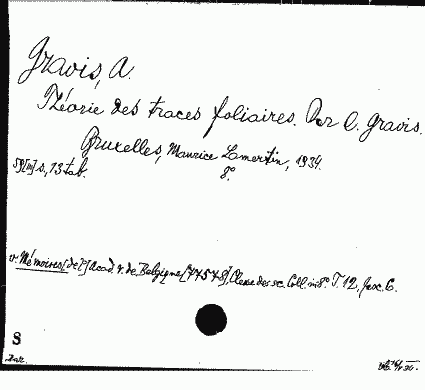 Gravis, A.
Théorie des traces foliaires. Par A. Gravis.
Bruxelles, Maurice Lamertin, 1934.
59[III] s., 13 tab. 8°.
v. Mémoires [de l'] Acad. r. de Belgique [77578], Classe des sc. Coll. in 8°. T. 12, fasc. 6.
S